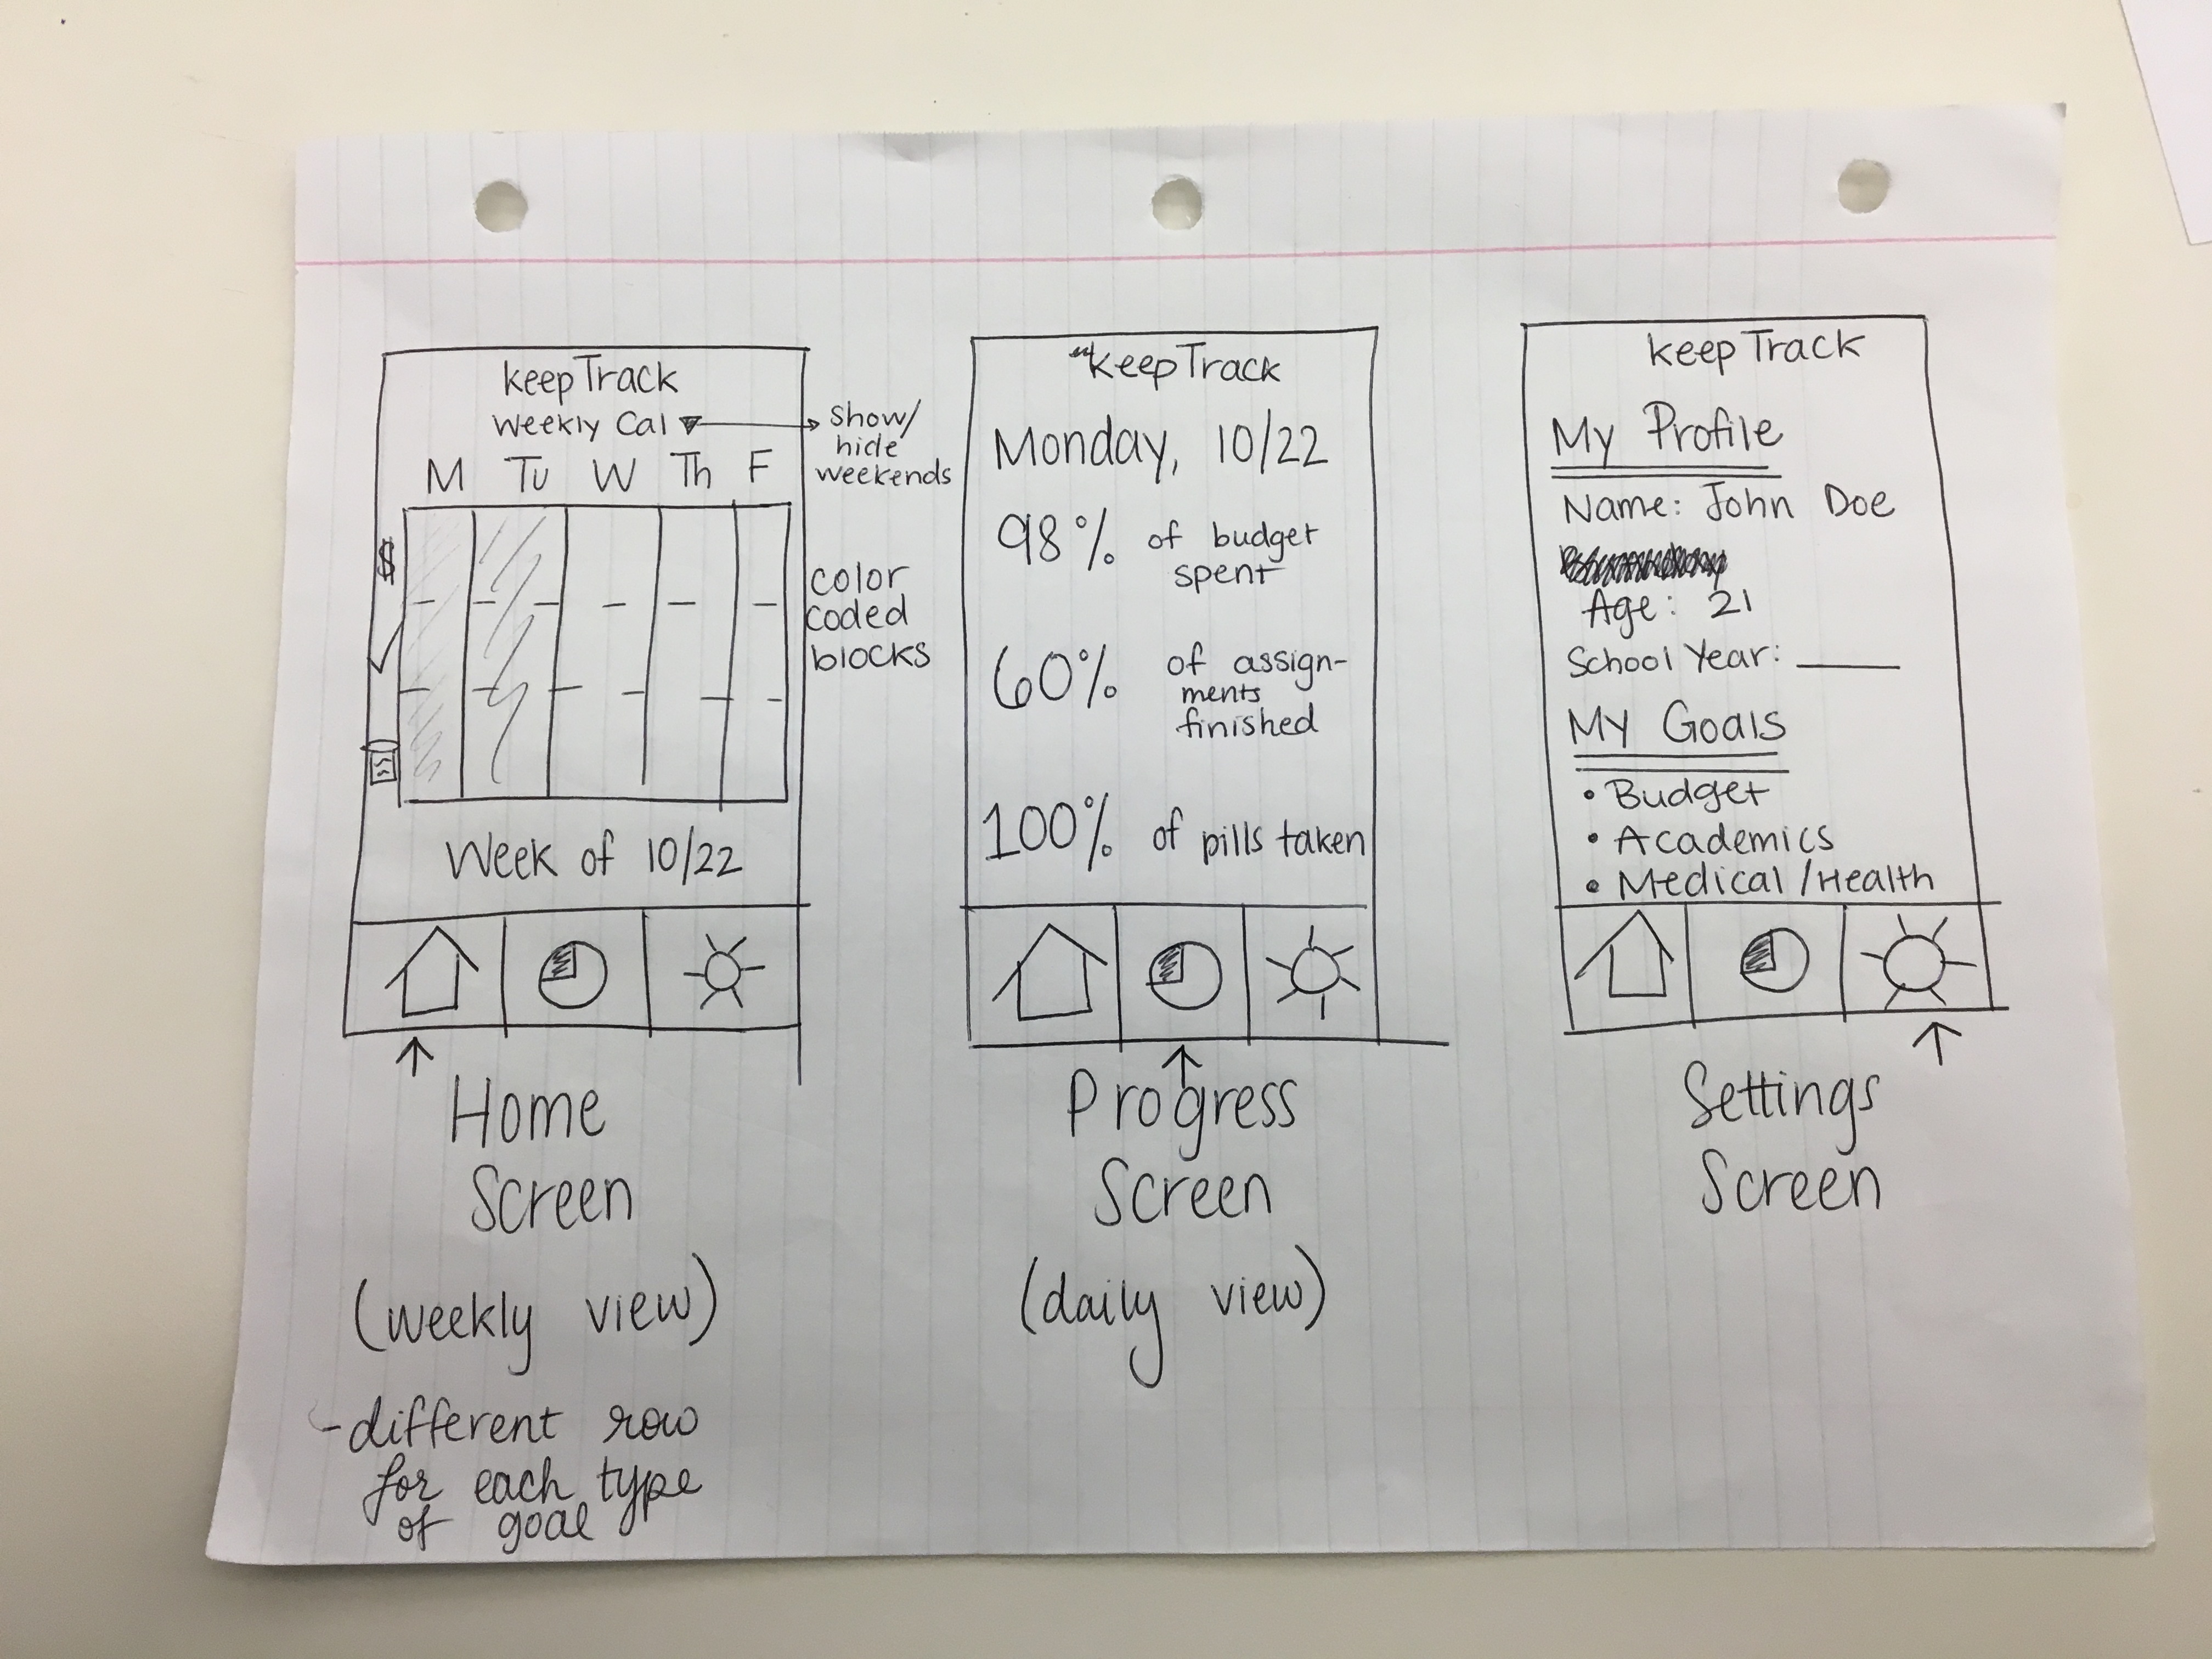 keepTrack
Weekly Cal
M Tu W Th F
$
Week of 10/22
Show/
hide
weekends
color
coded
blocks
Home
Screen
(weekly view)
-different row
for each type
of goal
keepTrack
Monday, 10/22
98% of budget
spent
60% of assign-
ments
finished
100% of pills taken
Progress
Screen
(daily view)
keepTrack
My Profile
Name: John Doe
Age: 21
School Year: ____
My Goals
• Budget
• Academics
• Medical/Health
Settings
Screen